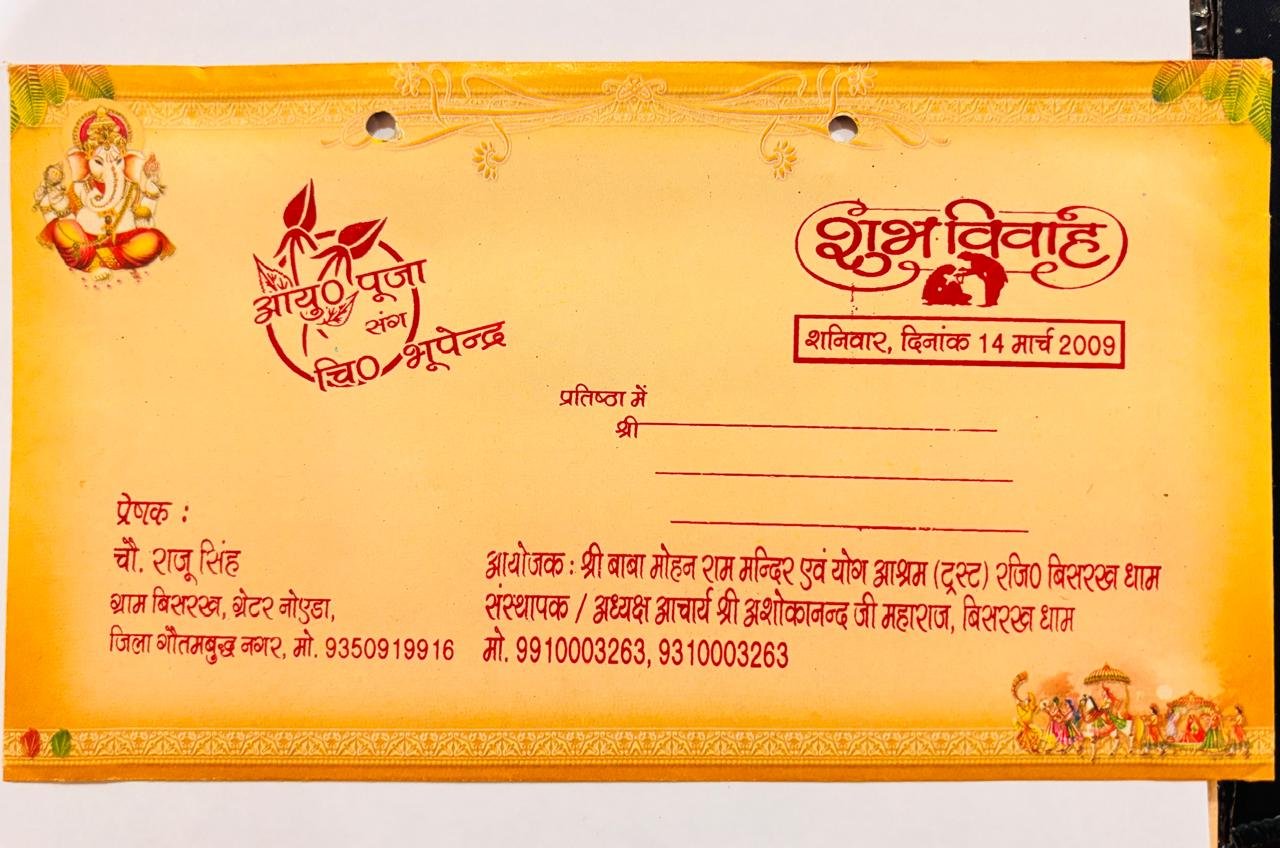 आयु0 पूजा
संग
चि0 भूपेन्द्र
शुभ विवाह
शनिवार, दिनांक 14 मार्च 2009
प्रतिष्ठा में
श्री
प्रेषक :
चौ. राजू सिंह
ग्राम बिसरख, ग्रेटर नोएडा,
जिला गौतमबुद्ध नगर, मो. 9350919916
आयोजक : श्री बाबा मोहन राम मन्दिर एवं योग आश्रम (ट्रस्ट) रजि0 बिसरख धाम
संस्थापक / अध्यक्ष आचार्य श्री अशोकानन्द जी महाराज, बिसरख धाम
मो. 9910003263, 9310003263